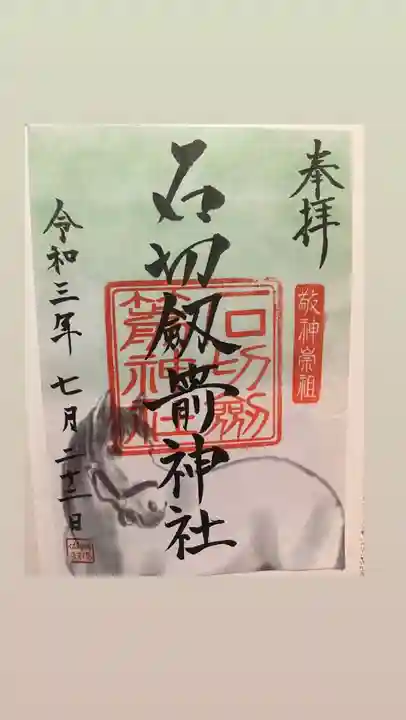 奉拝
敬神崇祖
石切劔箭神社
石切劔
箭神社
令和三年七月二十二日